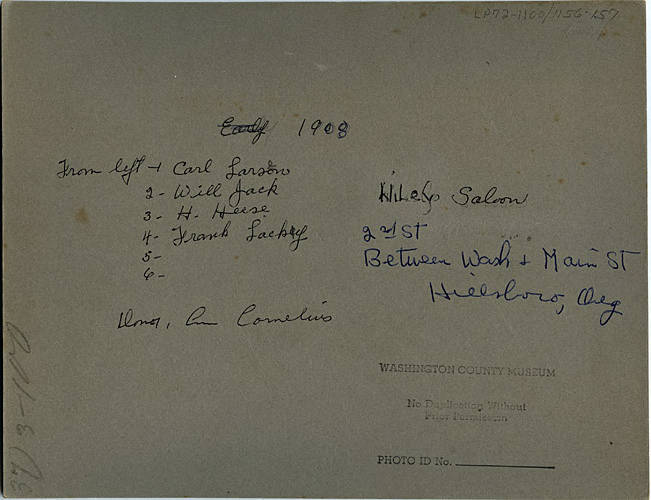 LP72-1160/156-157
Early 1908
From left 1 Carl Larson
2- Will Jack
3- H. Heese
4- Frank Lackey
5-
6-
Hiley's Saloon
2nd ST
Between Wash & Main ST
Hillsboro, Oreg
Donor, Cornelius
WASHINGTON COUNTY MUSEUM
No Duplication Without
Prior Permission
PHOTO ID No.